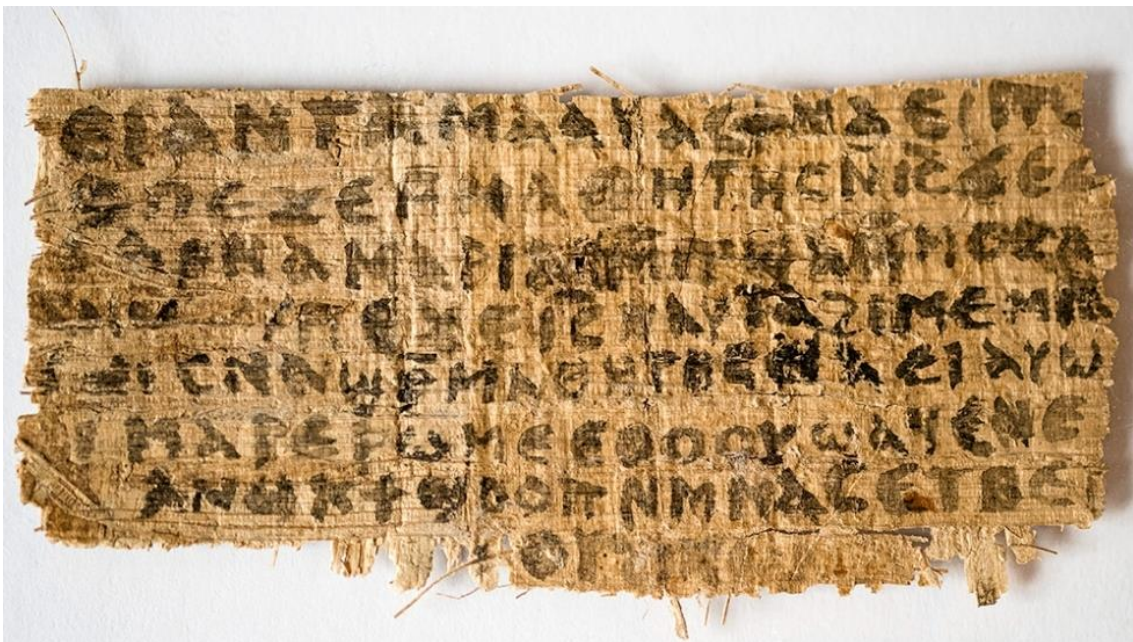 ⲉⲓ ⲁⲛ ⲧⲁⲙⲁⲁⲩ ⲁⲥϯ ⲛⲁⲉⲓ
ⲡⲉϫⲉ ⲙⲙⲁⲑⲏⲧⲏⲥ ⲛⲓ̅ⲥ̅ ϫⲉ
ⲁⲣⲛⲁ ⲙⲁⲣⲓⲁⲙ
ⲡⲉϫⲉ ⲓ̅ⲥ̅ ⲛⲁⲩ ⲧⲁϩⲓⲙⲉ ⲙⲛ
ⲥⲛⲁϣⲣ̅ⲙⲁⲑⲏⲧⲏⲥ ⲛⲁⲉⲓ ⲁⲩⲱ
ⲙⲁⲣⲉⲣⲱⲙⲉ ⲉⲑⲟⲟⲩ ϣⲁϥⲉ ⲛⲉ
ⲁⲛⲟⲕ ϯϣⲟⲟⲡ ⲛⲙⲙⲁⲥ ⲉⲧⲃⲉ